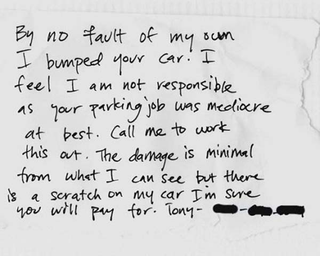 By no fault of my own
I bumped your car. I
feel I am not responsible
as your parking job was mediocre
at best. Call me to work
this out. The damage is minimal
from what I can see but there
is a scratch on my car I'm sure
you will pay for. Tony-